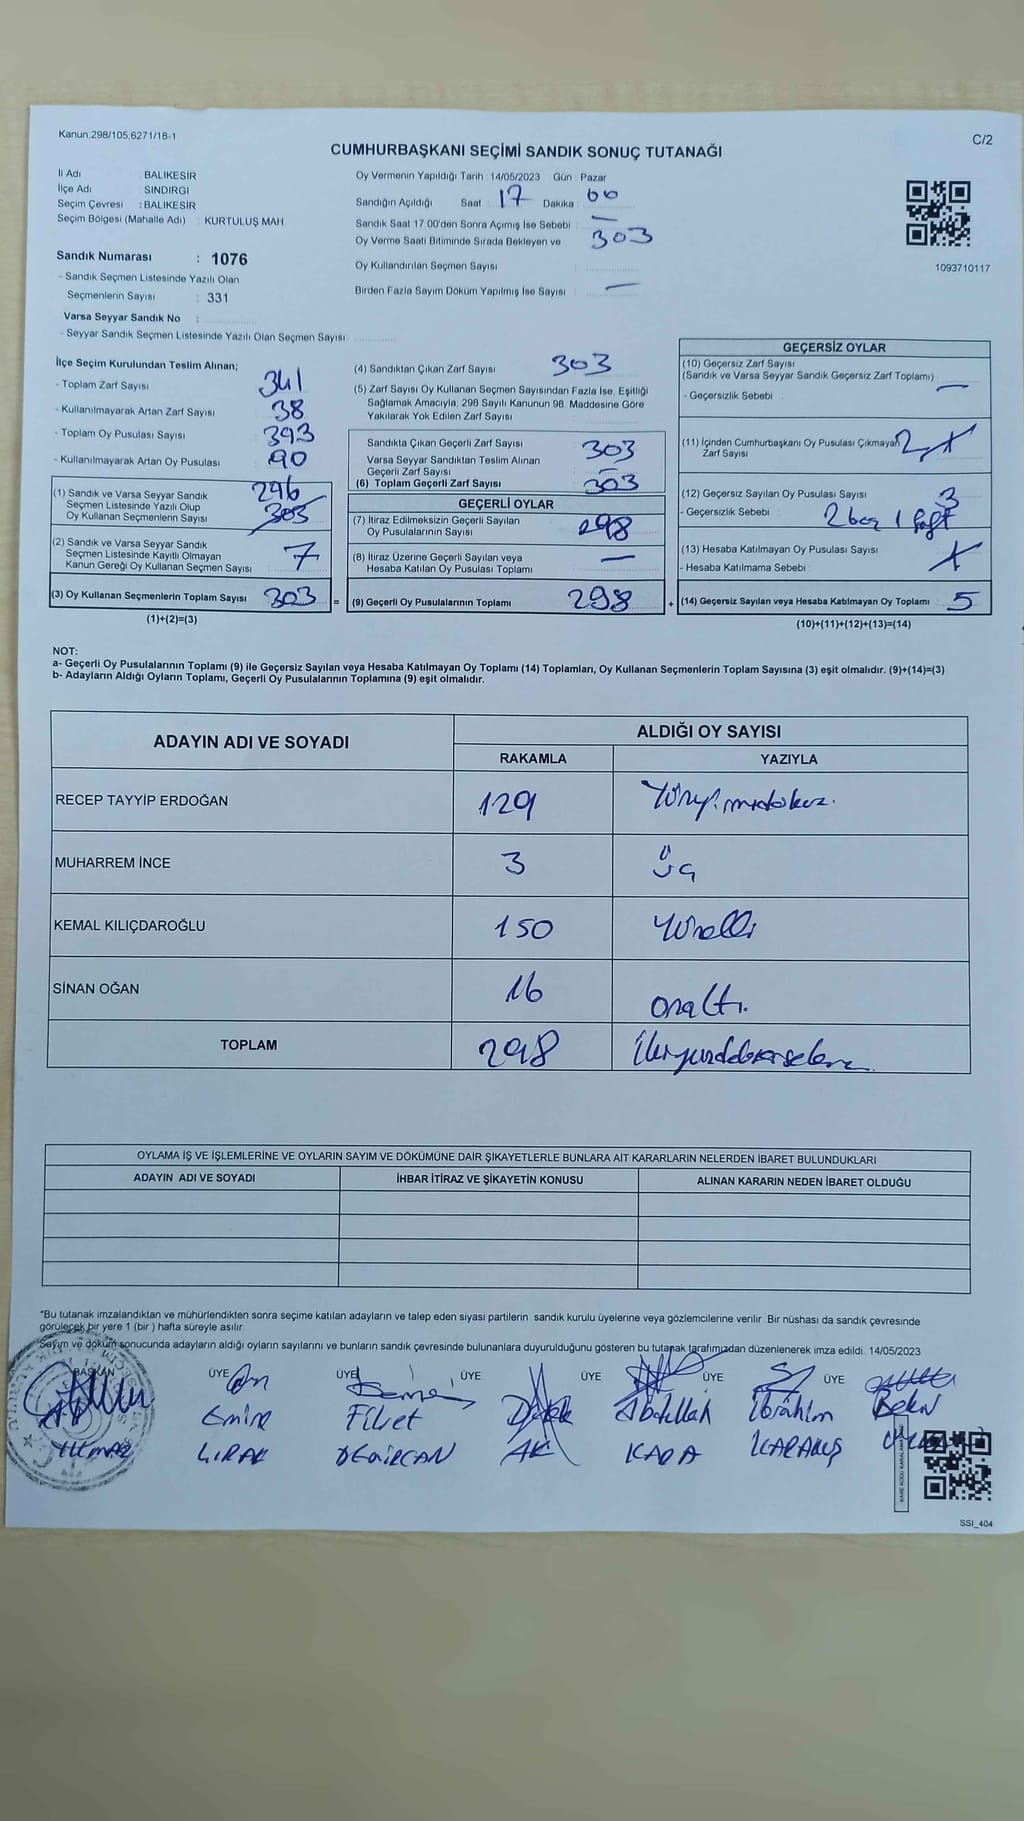 Kanun,298/105,6271/18-1
C/2
CUMHURBAŞKANI SEÇİMİ SANDIK SONUÇ TUTANAĞI
İl Adı : BALIKESİR
İlçe Adı : SINDIRGI
Seçim Çevresi : BALIKESİR
Seçim Bölgesi (Mahalle Adı) : KURTULUŞ MAH.
Sandık Numarası : 1076
- Sandık Seçmen Listesinde Yazılı Olan
Seçmenlerin Sayısı : 331
Varsa Seyyar Sandık No :
- Seyyar Sandık Seçmen Listesinde Yazılı Olan Seçmen Sayısı:
Oy Vermenin Yapıldığı Tarih : 14/05/2023 Gün : Pazar
Sandığın Açıldığı Saat 17 Dakika 00
Sandık Saat 17:00'den Sonra Açımış İse Sebebi : —
Oy Verme Saati Bitiminde Sırada Bekleyen ve 303
Oy Kullandırılan Seçmen Sayısı
Birden Fazla Sayım Döküm Yapılmış İse Sayısı —
1093710117
İlçe Seçim Kurulundan Teslim Alınan;
- Toplam Zarf Sayısı 341
- Kullanılmayarak Artan Zarf Sayısı 38
- Toplam Oy Pusulası Sayısı 393
- Kullanılmayarak Artan Oy Pusulası 90
(1) Sandık ve Varsa Seyyar Sandık 296
Seçmen Listesinde Yazılı Olup 303
Oy Kullanan Seçmenlerin Sayısı
(2) Sandık ve Varsa Seyyar Sandık
Seçmen Listesinde Kayıtlı Olmayan 7
Kanun Gereği Oy Kullanan Seçmen Sayısı
(3) Oy Kullanan Seçmenlerin Toplam Sayısı 303 =
(1)+(2)=(3)
(4) Sandıktan Çıkan Zarf Sayısı 303
(5) Zarf Sayısı Oy Kullanan Seçmen Sayısından Fazla İse, Eşitliği
Sağlamak Amacıyla, 298 Sayılı Kanunun 98. Maddesine Göre
Yakılarak Yok Edilen Zarf Sayısı
Sandıkta Çıkan Geçerli Zarf Sayısı 303
Varsa Seyyar Sandıktan Teslim Alınan
Geçerli Zarf Sayısı —
(6) Toplam Geçerli Zarf Sayısı 303
GEÇERLİ OYLAR
(7) İtiraz Edilmeksizin Geçerli Sayılan
Oy Pusulalarının Sayısı 298
(8) İtiraz Üzerine Geçerli Sayılan veya
Hesaba Katılan Oy Pusulası Toplamı —
(9) Geçerli Oy Pusulalarının Toplamı 298 +
GEÇERSİZ OYLAR
(10) Geçersiz Zarf Sayısı
(Sandık ve Varsa Seyyar Sandık Geçersiz Zarf Toplamı) —
- Geçersizlik Sebebi
(11) İçinden Cumhurbaşkanı Oy Pusulası Çıkmayan 2
Zarf Sayısı
(12) Geçersiz Sayılan Oy Pusulası Sayısı 3
- Geçersizlik Sebebi
(13) Hesaba Katılmayan Oy Pusulası Sayısı
- Hesaba Katılmama Sebebi
(14) Geçersiz Sayılan veya Hesaba Katılmayan Oy Toplamı 5
(10)+(11)+(12)+(13)=(14)
NOT:
a- Geçerli Oy Pusulalarının Toplamı (9) ile Geçersiz Sayılan veya Hesaba Katılmayan Oy Toplamı (14) Toplamları, Oy Kullanan Seçmenlerin Toplam Sayısına (3) eşit olmalıdır. (9)+(14)=(3)
b- Adayların Aldığı Oyların Toplamı, Geçerli Oy Pusulalarının Toplamına (9) eşit olmalıdır.
ADAYIN ADI VE SOYADI
ALDIĞI OY SAYISI
RAKAMLA YAZIYLA
RECEP TAYYİP ERDOĞAN 129
MUHARREM İNCE 3 üç
KEMAL KILIÇDAROĞLU 150 Yüzelli
SİNAN OĞAN 16 onaltı
TOPLAM 298
OYLAMA İŞ VE İŞLEMLERİNE VE OYLARIN SAYIM VE DÖKÜMÜNE DAİR ŞİKAYETLERLE BUNLARA AİT KARARLARIN NELERDEN İBARET BULUNDUKLARI
ADAYIN ADI VE SOYADI İHBAR İTİRAZ VE ŞİKAYETİN KONUSU ALINAN KARARIN NEDEN İBARET OLDUĞU
*Bu tutanak imzalandıktan ve mühürlendikten sonra seçime katılan adayların ve talep eden siyasi partilerin sandık kurulu üyelerine veya gözlemcilerine verilir. Bir nüshası da sandık çevresinde
görülecek bir yere 1 (bir ) hafta süreyle asılır.
Sayım ve döküm sonucunda adayların aldığı oyların sayılarını ve bunların sandık çevresinde bulunanlara duyurulduğunu gösteren bu tutanak tarafımızdan düzenlenerek imza edildi. 14/05/2023
BAŞKAN ÜYE ÜYE ÜYE ÜYE ÜYE ÜYE
Emine Fikret Dilek Abdullah İbrahim Bekir
YILMAZ KIRAK DEMİRCAN AK KARA KARAKUŞ
SSI_404